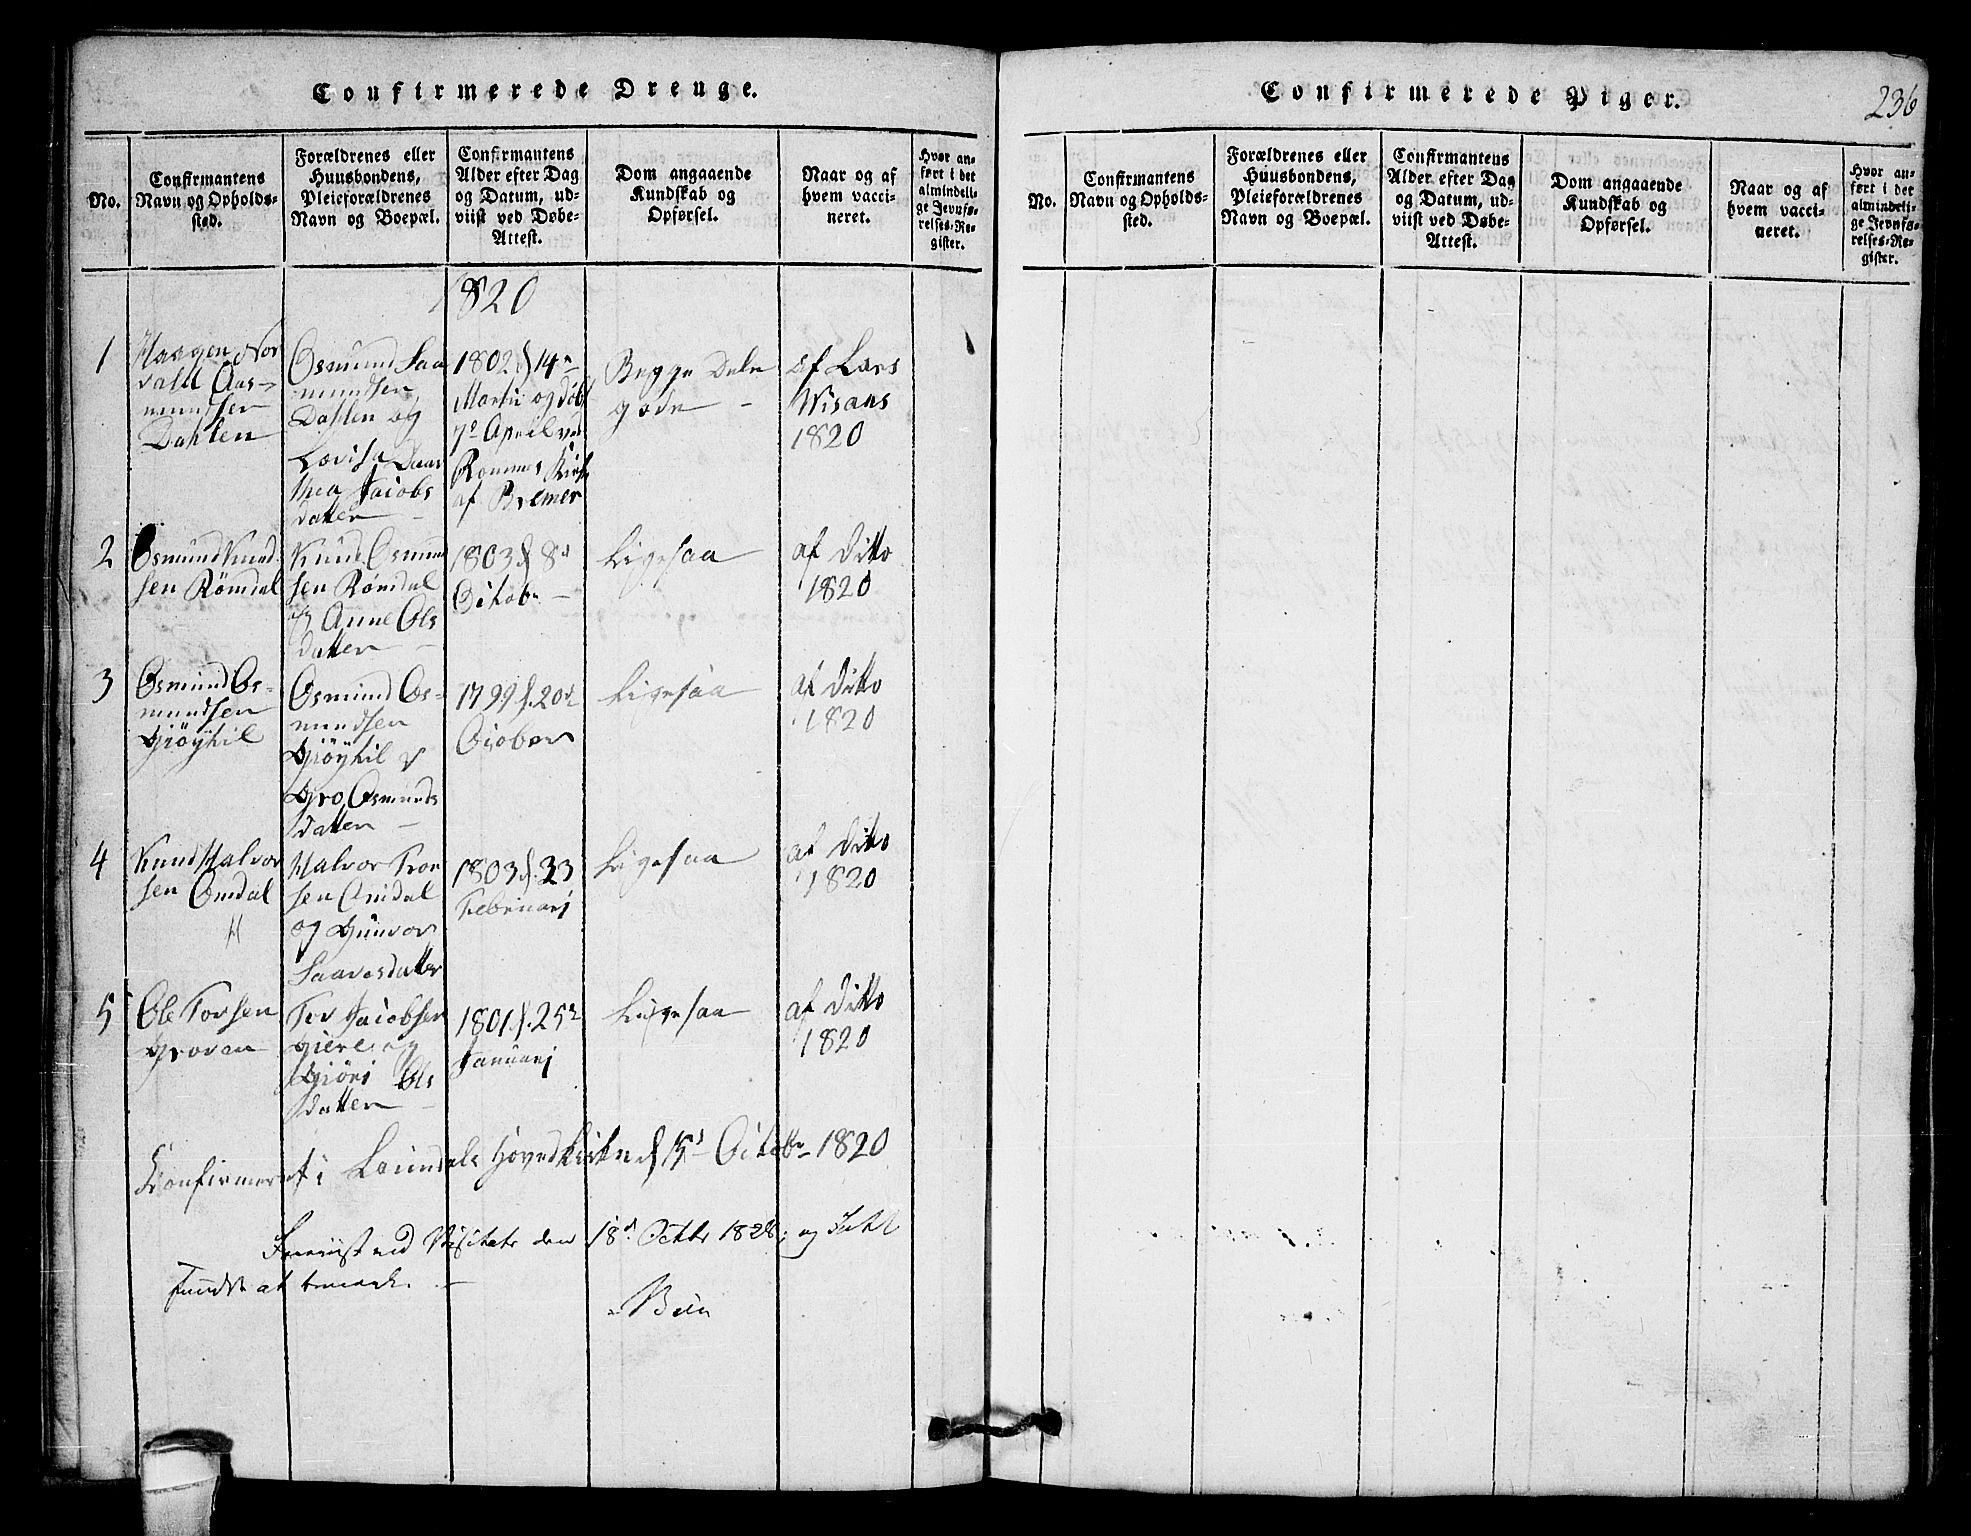 Confirmerede Drenge.
No.
Confirmantens
Navn og Opholds-
sted.
Forældrenes eller
Huusbondens,
Pleieforældrenes
Navn og Boepæl.
Confirmantens
Alder efter Dag
og Datum, ud-
viist ved Døbe-
Attest.
Dom angaaende
Kundskab og
Opførsel.
Naar og af
hvem vacci-
neret.
Hvor an-
ført i det
almindeli-
ge Jevnfø-
relses-Re-
gister.
1820
1
Haagen Nor
vald Aas-
mundsen
Dahlen
Osmund Saa
mundsen
Dahlen og
Lovisa Daar
thea Jacobs
datter
1802 d 14n
Martii og døbt
7d April ved
Kirke
af Bremer
Begge Dele
gode
af Lars
Wisaas
1820
2
Osmund Knud
sen Römdal
Knud Osmun
sen Römdal
og Anne Ols
datter
1803 d 8d
Octobr
Ligesaa
af ditto
1820
3
Osmund Os-
mundsen
Gjöÿhil
Osmund Os-
mundsen
Gjöÿhil og
Gro Osmunds
datter
1799 d. 20d
October
Ligesaa
af ditto
1820
4
Knud Halvor
sen Omdal
Halvor Tron
sen Omdal
og Gunvor
Saavesdatter
1803 d. 23
Februarj
Ligesaa
af ditto
1820
5
Ole Torsen
Groven
Tor Jacobsen
Gjere og
Gjöri Ols
datter
1801 d. 25d
Januarj
Ligesaa
af ditto
1820
Confirmeret i Laurdals Hovedkirke d 15d Octobr 1820
Foreviist ved Visitats den 18d Octbr 1828; og Intet
fundet at bemærke.
Confirmerede Piger.
236
No.
Confirmantens
Navn og Opholds-
sted.
Forældrenes eller
Huusbondens,
Pleieforældrenes
Navn og Boepæl.
Confirmantens
Alder efter Dag
og Datum, ud-
viist ved Døbe-
Attest.
Dom angaaende
Kundskab og
Opførsel.
Naar og af
hvem vacci-
neret.
Hvor an-
ført i det
almindeli-
ge Jevnfø-
relses-Re-
gister.